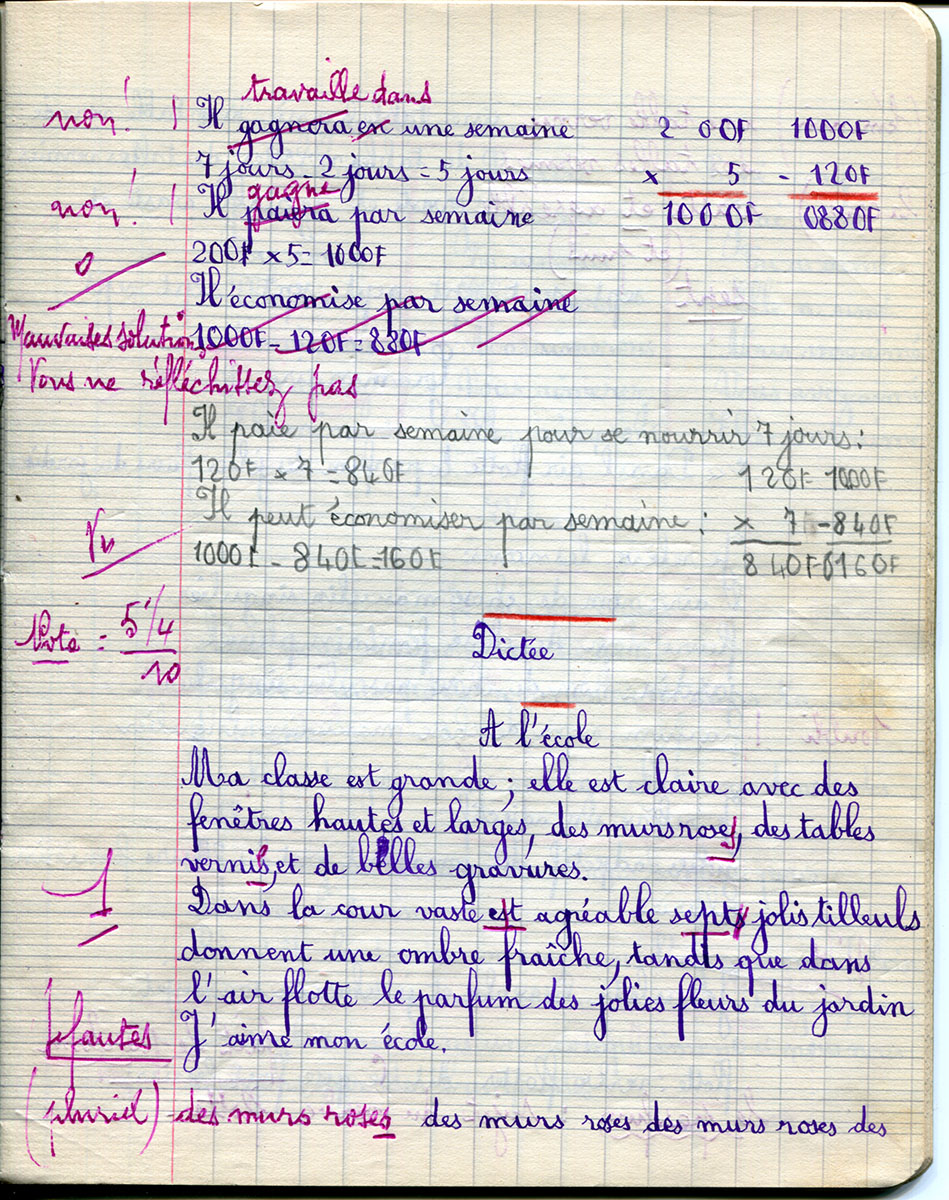 travaille dans
non! ! Il gagnera en une semaine 2 00F 1000F
7 jours - 2 jours = 5 jours x 5 - 120F
gagne
non! ! Il paiera par semaine 1000F 0880F
0 200F x 5 = 1000F
Il économise par semaine
Mauvaises solutions 1000F - 120F = 880F
Vous ne réfléchissez pas
Il paie par semaine pour se nourrir 7 jours :
120F x 7 = 840F 120F 1000F
Il peut économiser par semaine : x 7 - 840F
Vu 1000F - 840F = 160F 840F 0160F
Note = 5 1/4
10
Dictée
A l'école
Ma classe est grande ; elle est claire avec des
fenêtres hautes et larges, des murs roses, des tables
vernis, et de belles gravures.
Dans la cour vaste est agréable septs jolis tilleuls
donnent une ombre fraîche, tandis que dans
l'air flotte le parfum des jolies fleurs du jardin
J'aime mon école.
4 fautes
(pluriel) des murs roses des murs roses des murs roses des